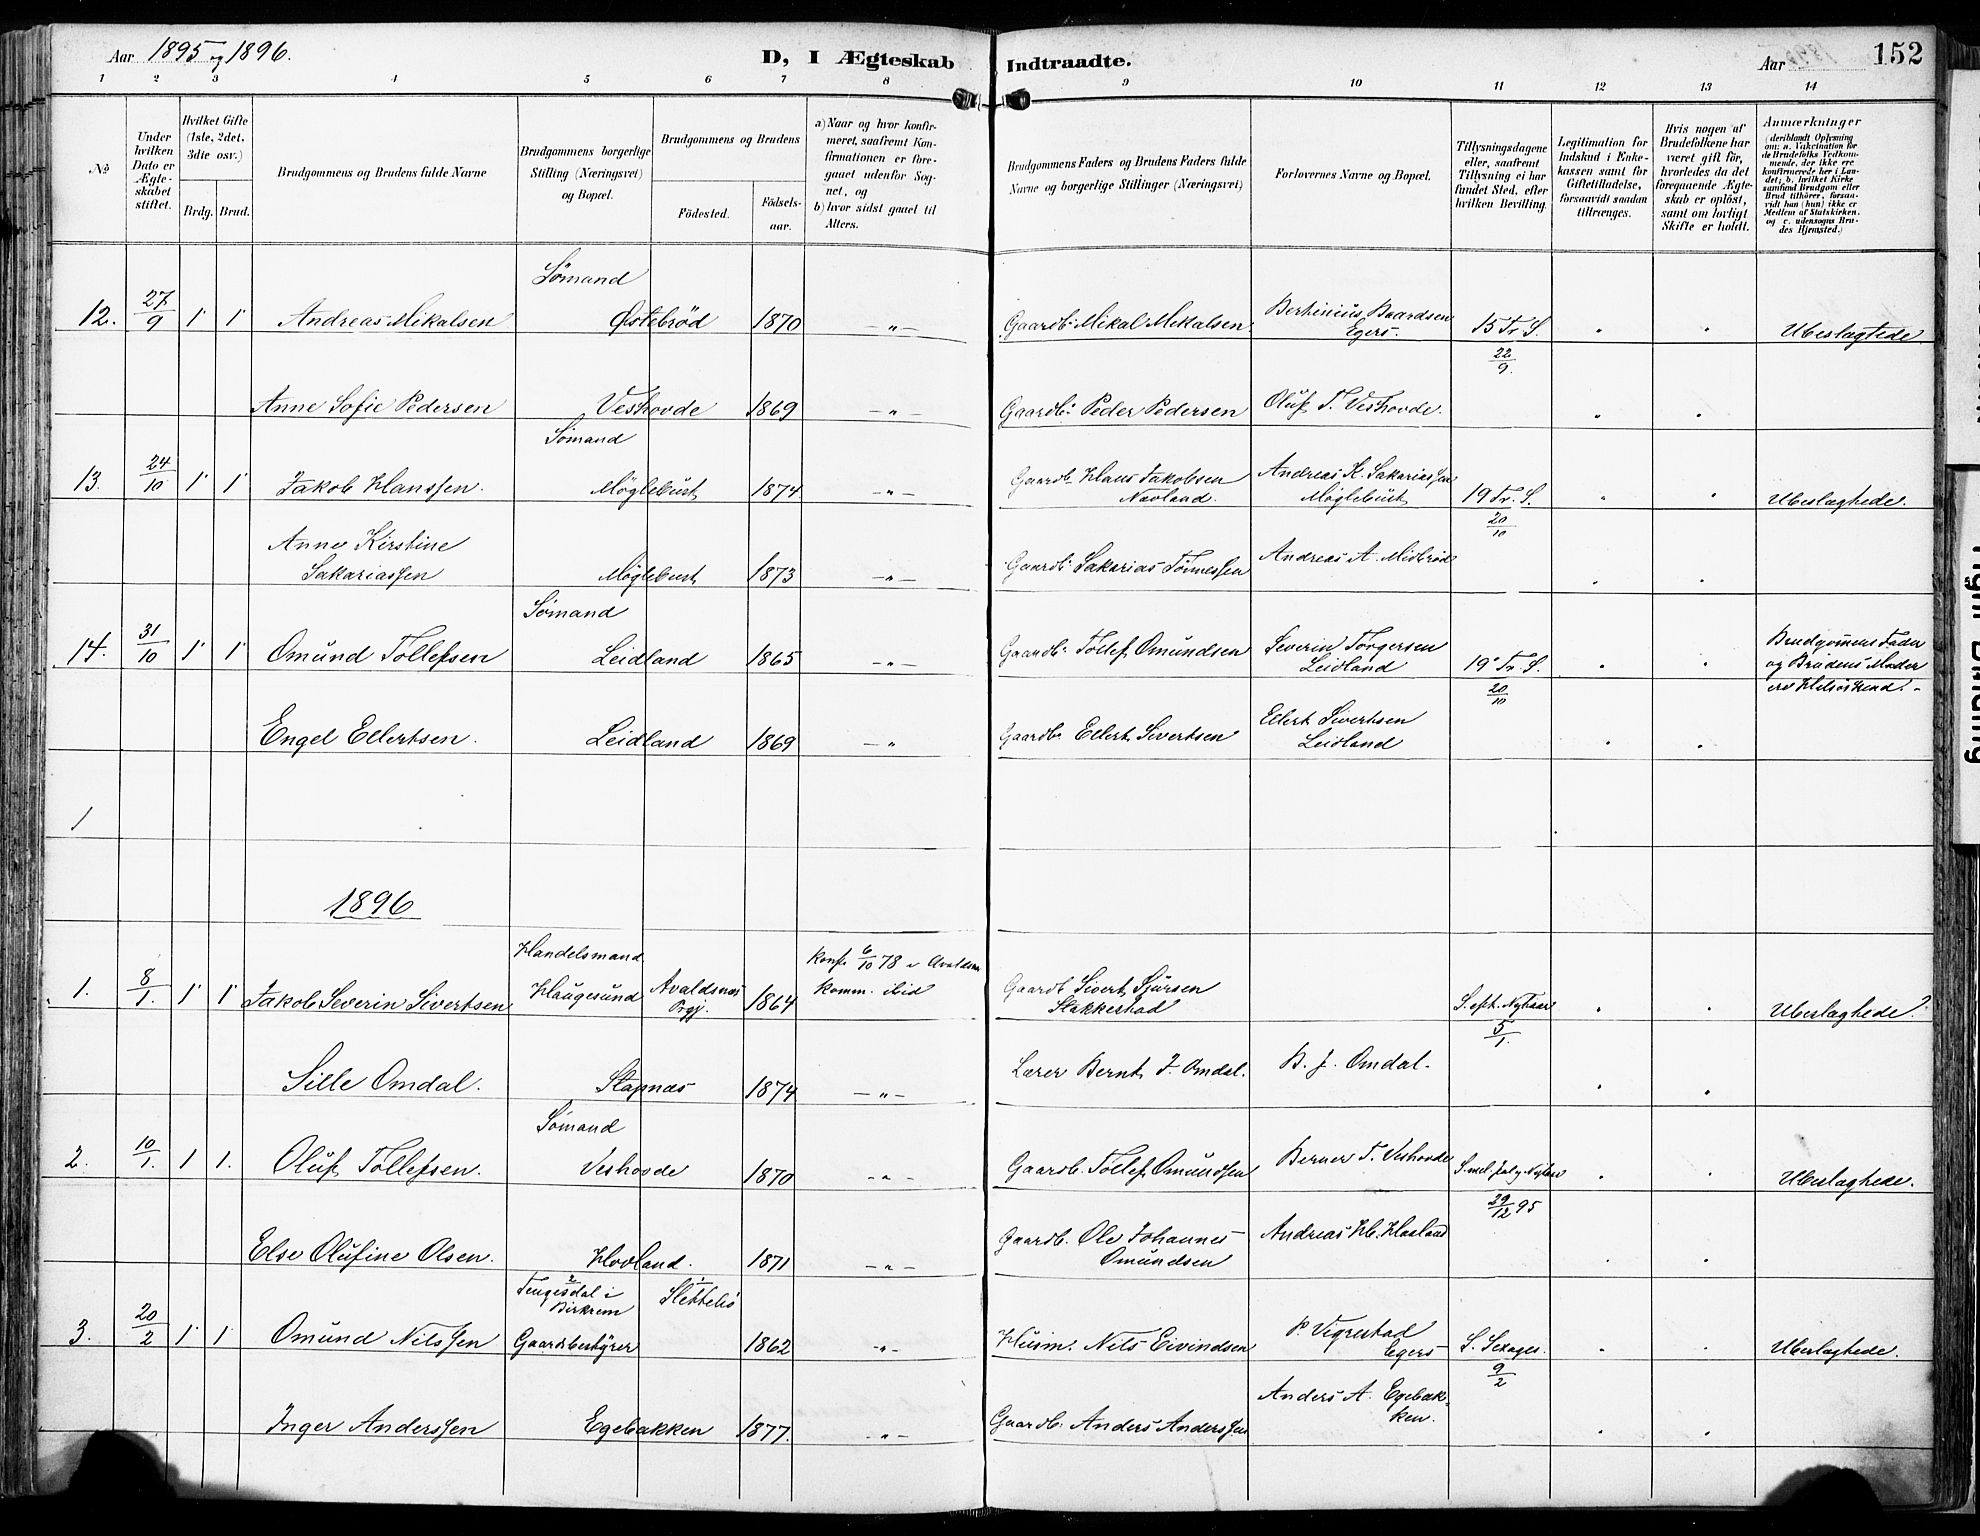 Aar 1895 og 1896.
D, I Ægteskab Indtraadte.
Aar
152
1 2 3 4 5 6 7 8 9 10 11 12 13 14
No
Under hvilken Dato er Ægteskabet stiftet.
Hvilket Gifte (1ste, 2det, 3die osv.)
Brdg. Brud.
Brudgommens og Brudens fulde Navne
Brudgommens borgerlige Stilling (Næringsvei) og Bopæl.
Brudgommens og Brudens
Födested.
Födselsaar.
a) Naar og hvor konfirmeret, saafremt Konfirmationen er foregaaet udenfor Sognet, og
b) hvor sidst gaaet til Alters.
Brudgommens Faders og Brudens Faders fulde Navne og borgerlige Stillinger (Næringsvei)
Forlovernes Navne og Bopæl.
Tillysningsdagene eller, saafremt Tillysning ei har fundet Sted, efter hvilken Bevilling.
Legitimation for Indskud i Enkekassen samt for Giftetilladelse, forsaavidt saadan tiltrænges.
Hvis nogen af Brudefolkene har været gift för, hvorledes da det foregaaende Ægteskab er oplöst, samt om lovligt Skifte er holdt.
Anmærkninger
(deriblandt Oplysning om: a. Vakcination för de Brudefolks Vedkommende, der ikke ere konfirmerede her i Landet; b. hvilket Kirkesamfund Brudgom eller Brud tilhörer, forsaavidt han (hun) ikke er Medlem af Statskirken, og c. udensogns Brudes Hjemsted.)
Sömand
12. 27/9 1 1 Andreas Mikalsen Östebröd 1870 —„— Gaardb: Mikal Mikalsen Bertinius Baardsen Egers. 15 Tr. S. 22/9. „ „ Ubeslagtede
Anne Sofie Pedersen Veshovde 1869 —„— Gaardb: Peder Pedersen Oluf T. Veshovde. „ „
Sömand
13. 24/10 1 1 Jakob Hanssen. Möglebust 1874 —„— Gaardb. Hans Jakobsen Navland. Andreas K. Sakariassen Möglebust 19 Tr. S. 20/10 „ „ Ubeslagtede.
Anne Kirstine Sakariassen Möglebust 1873 —„— Gaardb: Sakarias Tönnessen Andreas A. Midbröd „ „
Sömand
14. 31/10 1 1 Omund Tollefsen Leidland 1865 —„— Gaardb: Tollef Omundsen Severin Torgersen Leidland 19 Tr. S. 20/10 „ „ Brudgommens Fader og Brudens Moder ere Helsöskend.
Engel Ellertsen. Leidland 1869 —„ Gaardb: Ellert Sivertsen Ellert Sivertsen Leidland „ „
1
1896
Handelsmand
1. 8/1. 1 1 Jakob Severin Sivertsen Haugesund Avaldsnes Prgj. 1864 Konf. 6/10 78 i Avaldsnes komm. ibid Gaardb Sivert Sjursen Stakkestad S. eft. Nytaar 5/1. „ „ Ubeslagtede?
Sille Omdal. Stapnes 1874 —„— Lærer Bernt J. Omdal. B. J. Omdal. „ „
Sömand
2. 10/1. 1 1. Oluf Tollefsen. Veshovde 1870 —„— Gaardb. Tollef Omundsen Berner T. Veshovde S. mel. Jul og Nytaar 29/12 95 „ „ Ubeslagtede.
Else Olufine Olsen. Hovland. 1871 —„— Gaardb. Ole Johannes Omundsen Andreas Hb. Hovland „ „
Tengesdal i Birkrem Slettebö
3. 20/2 1 1 Omund Nilssen Gaardbestyrer 1862 —„— Husm. Nils Eivindsen P. Vigrestad Egers S. Sexages. 9/2 „ „ Ubeslagtede.
Inger Anderssen Egebakken 1877. —„— Gaardb: Anders Anderssen Anders A. Egebakken. „ „